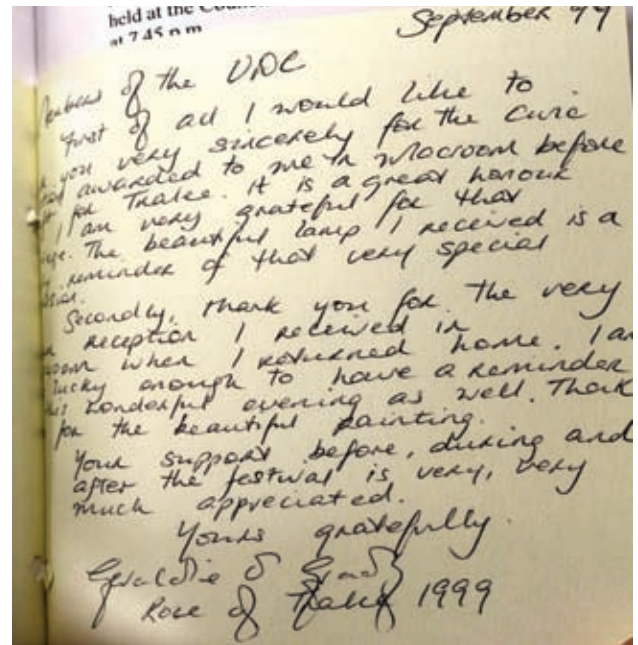 held at the Coun
at 7.45 p.m
September 99
Members of the UDC
First of all I would like to
you very sincerely for the Civic
awarded to me in Macroom before
for Tralee. It is a great honour
I am very grateful for that
The beautiful lamp I received is a
reminder of that very special
Secondly, thank you for the very
reception I received in
when I returned home. I am
lucky enough to have a reminder
wonderful evening as well. Thank
for the beautiful painting.
Your support before, during and
after the festival is very, very
much appreciated.
Yours gratefully.
Geraldine O Grady
Rose of Tralee 1999